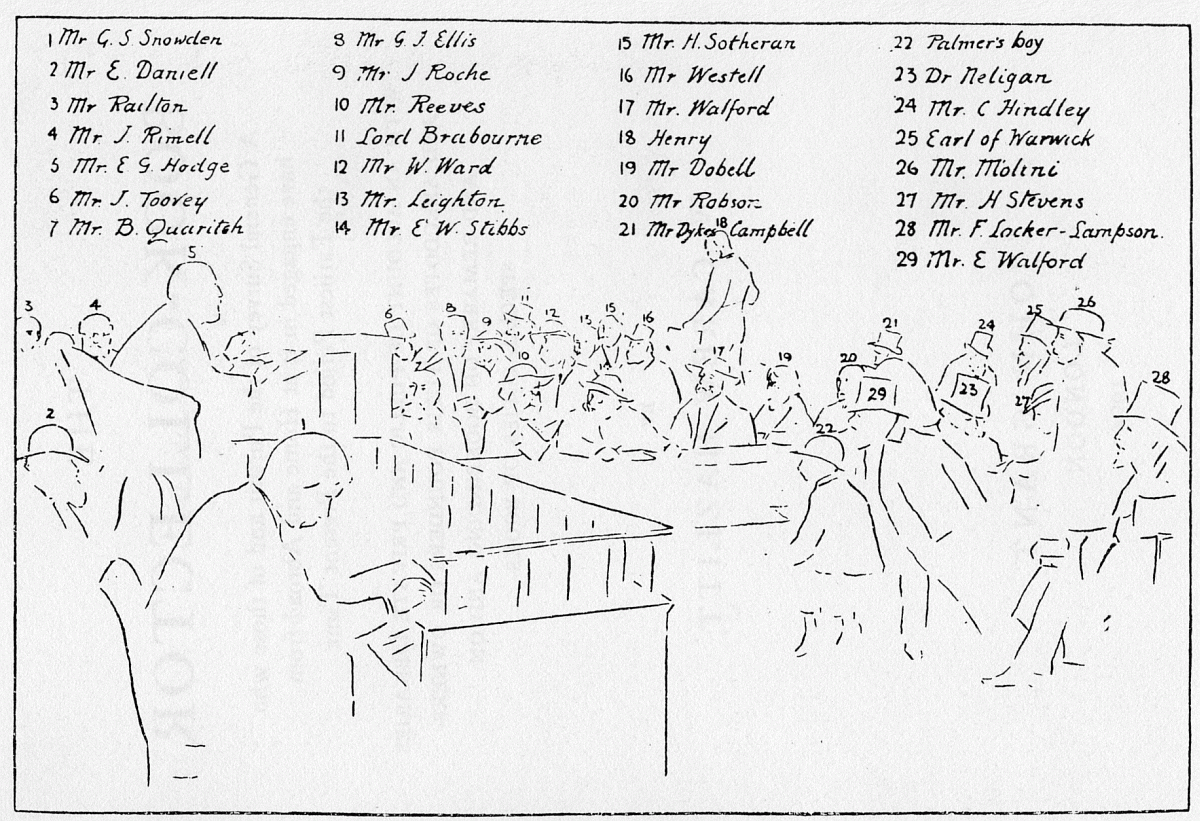 1 Mr G. S. Snowden
2 Mr E. Daniell
3 Mr Railton
4 Mr. J. Rimell
5 Mr. E G. Hodge
6 Mr. J. Toovey
7 Mr. B. Quaritch
8 Mr G. J. Ellis
9 Mr. J Roche
10 Mr. Reeves
11 Lord Brabourne
12 Mr W. Ward
13 Mr. Leighton
14 Mr. E W. Stibbs
15 Mr. H. Sotheran
16 Mr Westell
17 Mr. Walford
18 Henry
19 Mr Dobell
20 Mr Robson
21 Mr Dykes Campbell
22 Palmer's boy
23 Dr Neligan
24 Mr. C Hindley
25 Earl of Warwick
26 Mr. Molini
27 Mr. H Stevens
28 Mr. F. Locker-Lampson.
29 Mr. E Walford
18
5
3
4
6
8
9
11
12
13
15
16
10
7
17
19
20
21
29
24
23
25
26
27
28
2
1
22